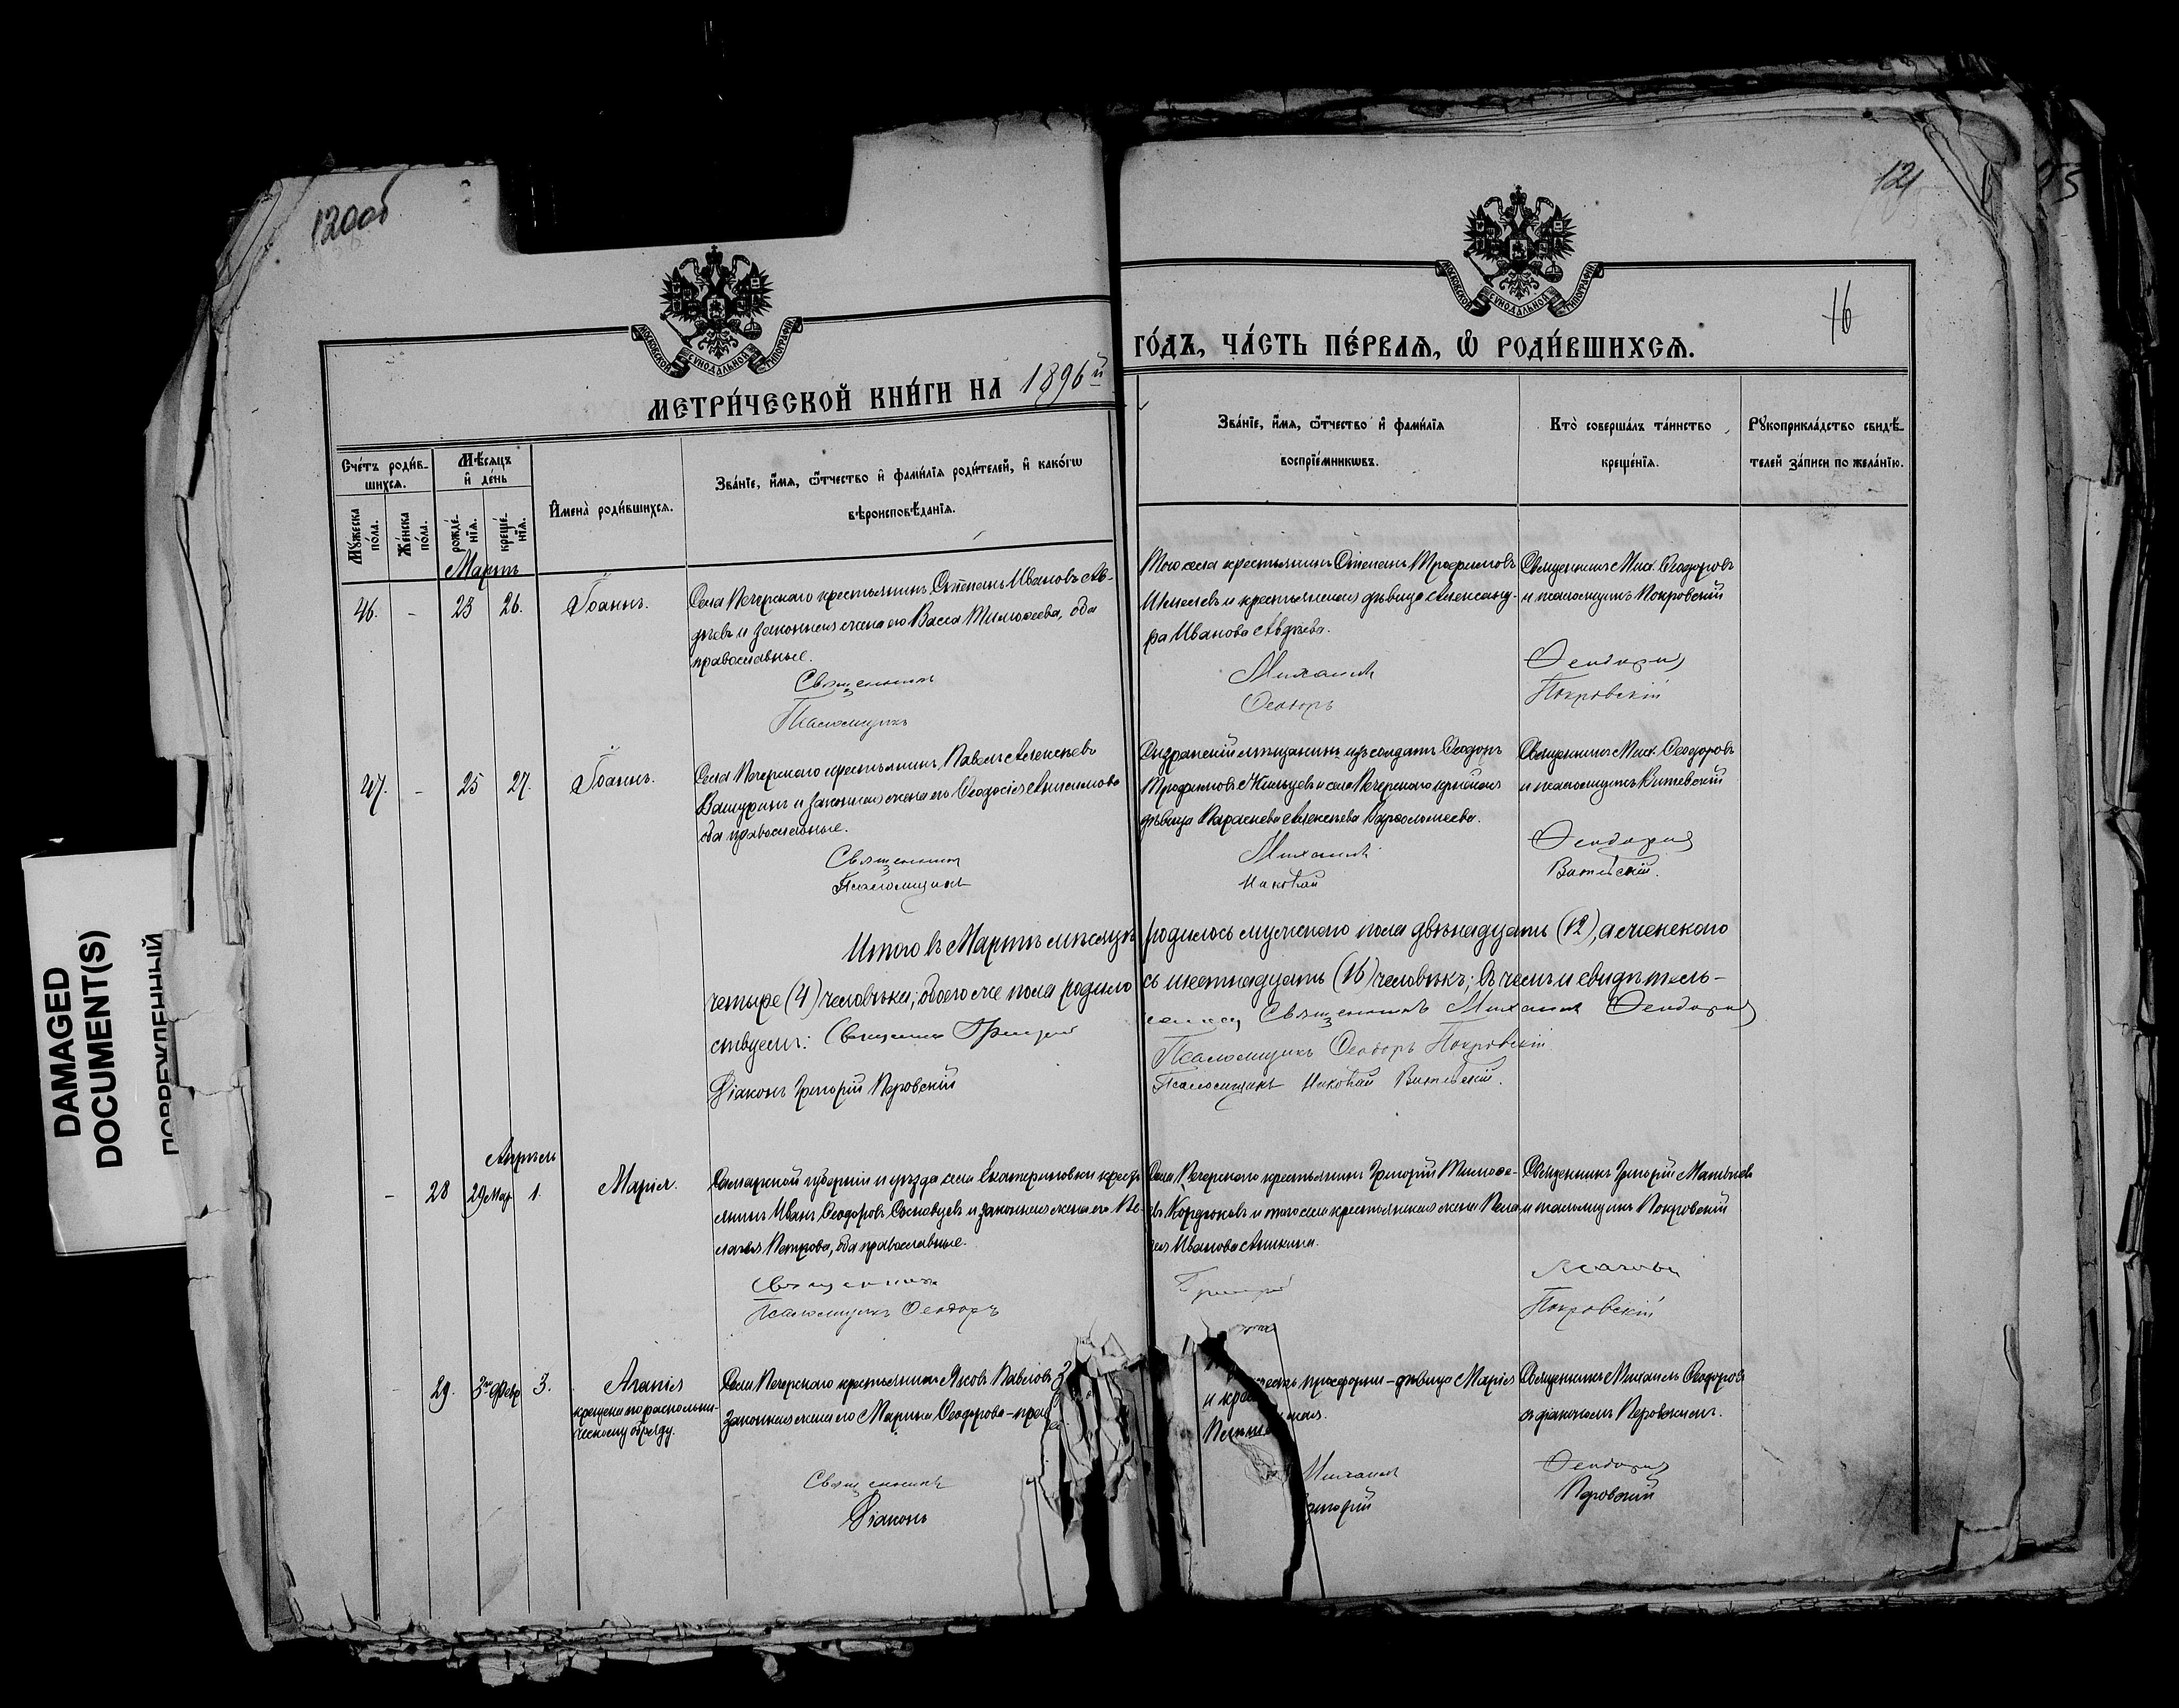 120об
121
16
МОСКОВСКОЙ СѴНОДАЛЬНОЙ ТИПОГРАФІИ
МОСКОВСКОЙ СѴНОДАЛЬНОЙ ТИПОГРАФІИ
МЕТРИ́ЧЕСКОЙ КНИ́ГИ НА 1896й
ГО́ДЪ, ЧА́СТЬ ПЕ́РВАЯ, Ѡ РОДИ́ВШИХСЯ.
Сче́тъ роди́вшихся.
Мꙋ́жеска по́ла.
Же́нска по́ла.
Мѣ́сяцъ и҆ де́нь
рожде́нїя.
креще́нїя.
И҆мена̀ роди́вшихся.
Зва́нїе, и҆́мя, ѻ҆́тчество и҆ фами́лїя роди́телей, и҆ како́гѡ
вѣроисповѣ́данїя.
Зва́нїе, и҆́мя, ѻ҆́тчество и҆ фами́лїя
воспрїе́мникѡвъ.
Кто̀ соверша́лъ та́инство
креще́нїя.
Рꙋкоприкла́дство свидѣ́-
телей за́писи по жела́нїю.
Мартъ
46. - 23 26. Іоаннъ.
Села Печерскаго крестьянинъ Стефанъ Ивановъ Ав-
дѣевъ и законная жена его Васса Тимоѳеева, оба
православные.
Священникъ
Псаломщикъ
Того села крестьянинъ Стефанъ Трофимовъ
и крестьянская дѣвица Александ-
ра Иванова Авдѣева.
Михаилъ
Ѳеодоръ
Священникъ Мих. Ѳеодоровъ
и псаломщикъ Покровскій
Ѳеодоровъ
Покровскій
47. - 25 27. Іоаннъ.
Села Печерскаго крестьянинъ Павелъ Алексѣевъ
Вашуринъ и законная жена его Ѳеодосія Анисимова
оба православные.
Священникъ
Псаломщикъ
Сызранскій мѣщанинъ изъ солдатъ
Трофимовъ и села Печерскаго
дѣвица Параскева Алексѣева Варѳоломеева.
Михаилъ
Николай
Священникъ Мих. Ѳеодоровъ
и псаломщикъ Витевскій
Ѳеодоровъ
Витевскій.
Итого въ Мартѣ мѣсяцѣ родилось мужского пола двѣнадцать (12), а женскаго
четыре (4) человѣка; обоего же пола родилось шестнадцать (16) человѣкъ; въ чемъ и свидѣтель-
ствуемъ: Священникъ Григорій
Священникъ Михаилъ Ѳеодоровъ
Псаломщикъ Ѳеодоръ Покровскій
Діаконъ Григорій Перовскій
Псаломщикъ Николай Витевскій.
Апрѣль
- 28 29 Мар. 1. Марія.
Самарской губерніи и уѣзда села Екатериновки кресть-
янинъ Иванъ Ѳеодоровъ Сосновцевъ и законная жена его Пе-
лагея Петрова, оба православные.
Священникъ
Псаломщикъ Ѳеодоръ
Села Печерскаго крестьянинъ Григорій Тимоѳе-
евъ Кордюковъ и того села крестьянская жена Пела-
гея Иванова Аникина.
Григорій
Священникъ Григорій Матвѣевъ
и псаломщикъ Покровскій
Покровскій
- 29. 3го Февр 3. Агапія
крещена по расколь­ни-
ческому обряду.
Села Печерскаго крестьянинъ Яковъ Павловъ
законная жена его Марина Ѳеодорова
Священникъ
Діаконъ
просфорни - дѣвица Марія
Михаилъ
Григорій
Священникъ Михаилъ Ѳеодоровъ
съ діакономъ Перовскимъ.
Ѳеодоровъ
Перовскій
DAMAGED
DOCUMENT(S)
ПОВРЕЖДЕННЫЙ